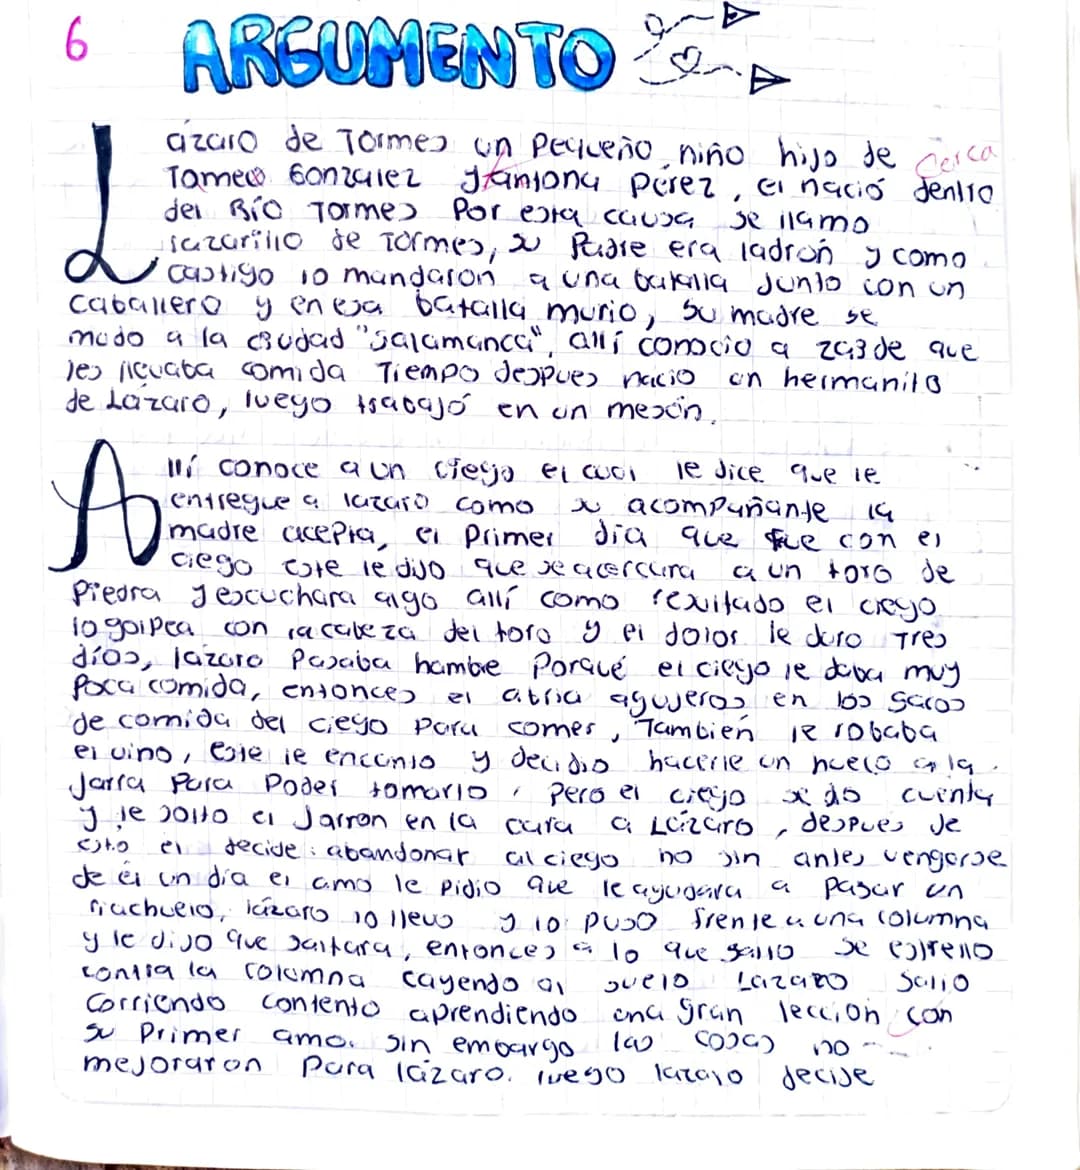 6 ARGUMENTO
Lázaro de Tormes un pequeño niño hijo de cerca
Tomeo Gonzalez y antona Pérez, el nació dentro
del Río Tormes Por esta causa se llamo
lazarillo de Tormes, su Padre era ladrón y como
castigo lo mandaron a una batalla Junto con un
caballero y en esa batalla murio, su madre se
mudo a la ciudad "Salamanca", allí conocio a zaide que
les llevaba comida Tiempo despues nacio un hermanito
de Lázaro, luego trabajó en un mesón.
Allí conoce a un ciego el cual le dice que le
entregue a lazaro como su acompañante la
madre acepta, el Primer día que fue con el
ciego este le dijo que se acercara a un toro de
Piedra y escuchara algo allí como resultado el ciego
lo golpea con la cabeza del toro y el dolor le duro Tres
días, lázaro Pasaba hambre Porqué el ciego le daba muy
Poca comida, entonces el abria agujeros en los sacos
de comida del ciego Para comer, También le robaba
el vino, este le encanto y decidio hacerle un hueco a la
Jarra Para Poder tomarlo, Pero el ciego se dio cuenta
y le solto el Jarron en la cara a Lázaro, despues de
esto el decide abandonar al ciego no sin antes vengarse
de él un día el amo le Pidio que le ayudara a pasar un
riachuelo, lázaro lo llevo y lo puso frente a una columna
y le dijo que saltara, entonces a lo que salto se estrello
contra la columna cayendo al suelo Lazaro salio
corriendo contento aprendiendo una gran lección con
su Primer amo. sin embargo las cosas no
mejoraron Para lázaro. luego lazaro decide